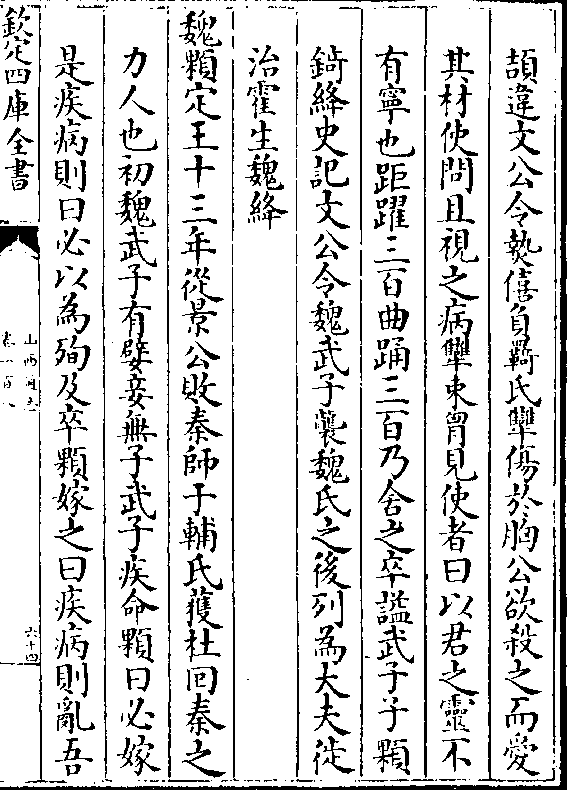 頡違文公令爇僖負羈氏犨傷於胸公欲殺之而愛
其材使問且視之病犨束胷見使者曰以君之靈不
有寧也距躍三百曲踊三百乃舍之卒諡武子子顆
錡絳史記文公令魏武子襲魏氏之後列為大夫徙
治霍生魏絳
魏顆定王十三年從景公敗秦師于輔氏獲杜回秦之
力人也初魏武子有嬖妾無子武子疾命顆曰必嫁
是疾病則曰必以為殉及卒顆嫁之曰疾病則亂吾
欽定四庫全書
六十四